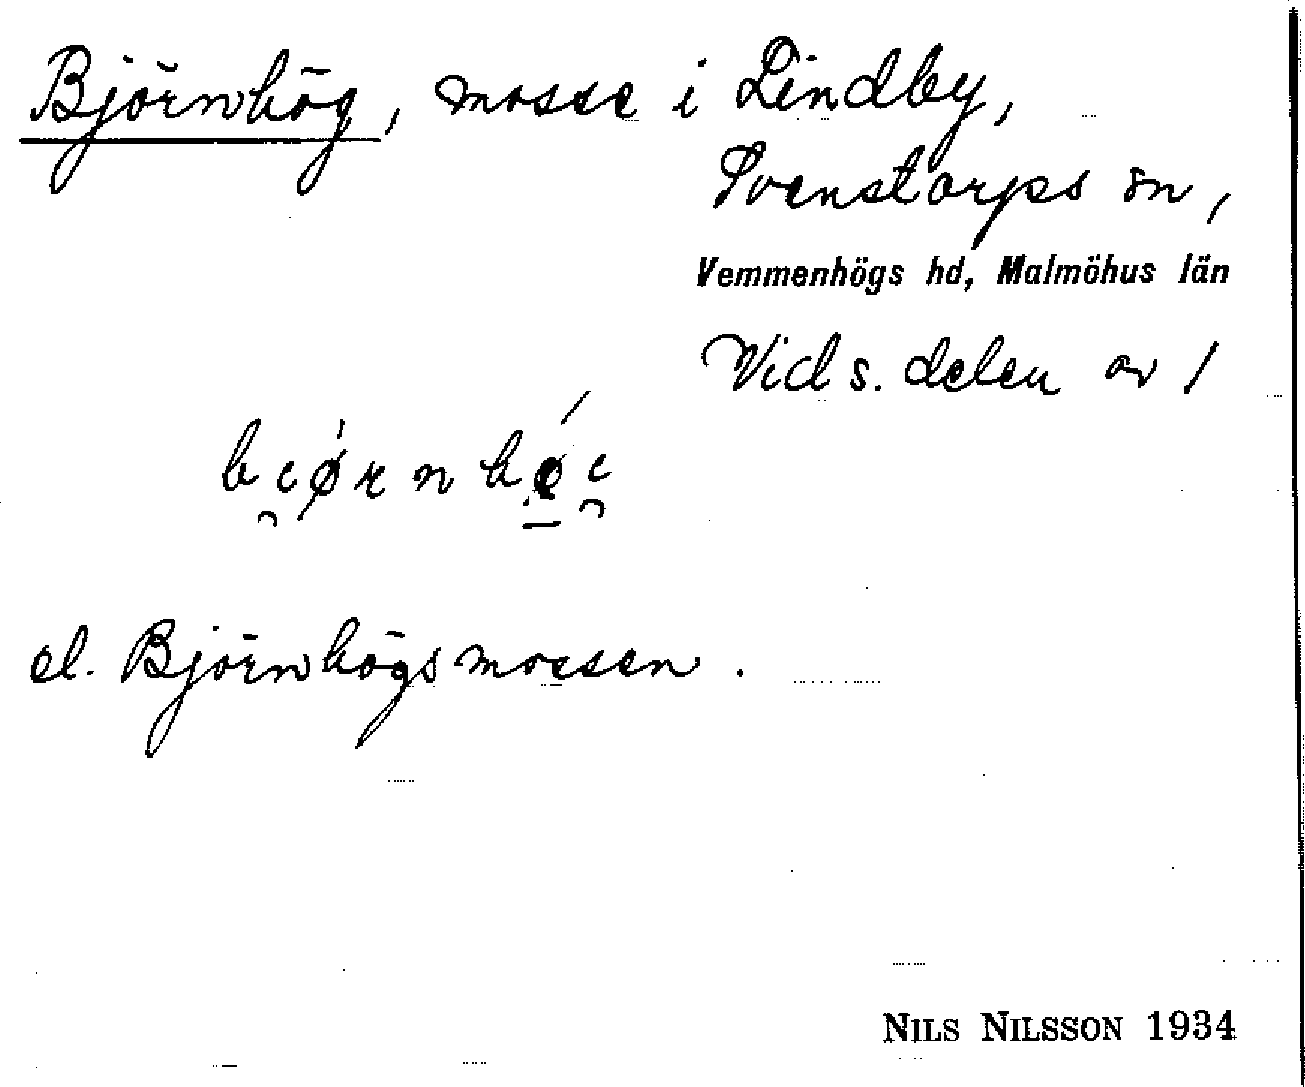 Björnhög, mosse i Lindby,
Svenstorps sn,
Vemmenhögs hd, Malmöhus län
Vid s. delen av 1
el. Björnhögsmossen.
NILS NILSSON 1934